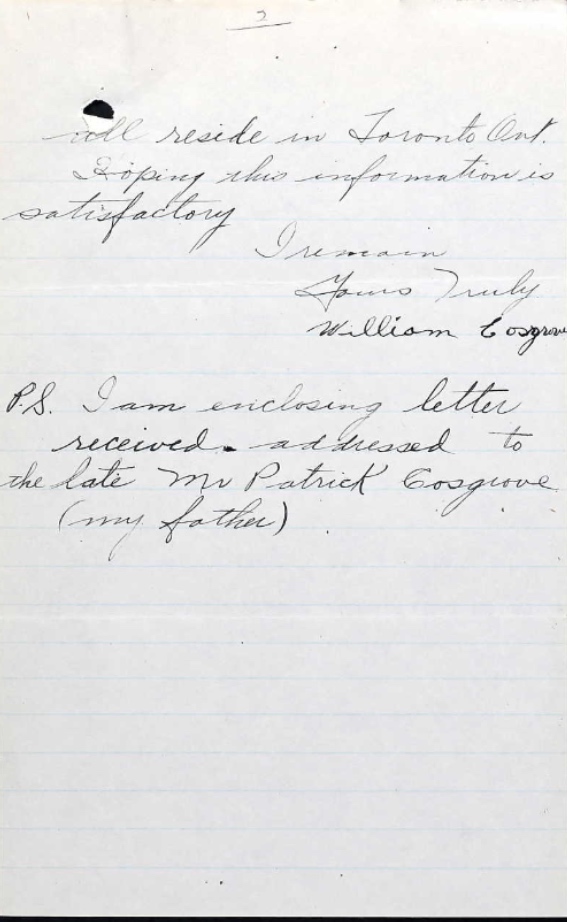 2
all reside in Toronto Ont.
Hoping this information is
satisfactory
I remain
Yours Truly
William Cosgrove
P.S. I am enclosing letter
received addressed to
the late Mr Patrick Cosgrove
(my father)